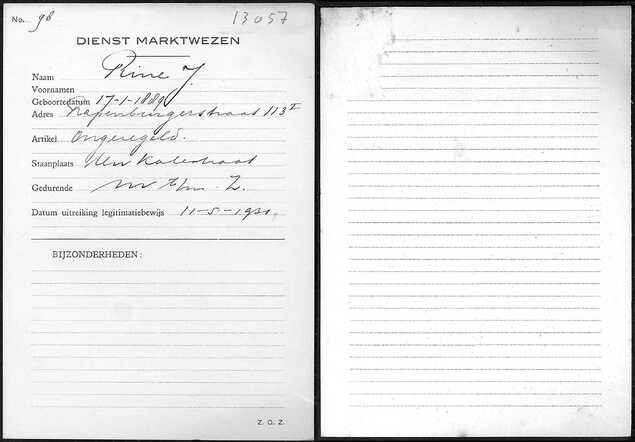 No. 98 13057
DIENST MARKTWEZEN
Naam Rine J.
Voornamen
Geboortedatum 17-1-1889
Adres Rapenburgerstraat 113 II
Artikel Ongeregeld.
Staanplaats Uilenburgerstraat
Gedurende m t/m Z.
Datum uitreiking legitimatiebewijs 11-5-1921
BIJZONDERHEDEN:
Z. O. Z.